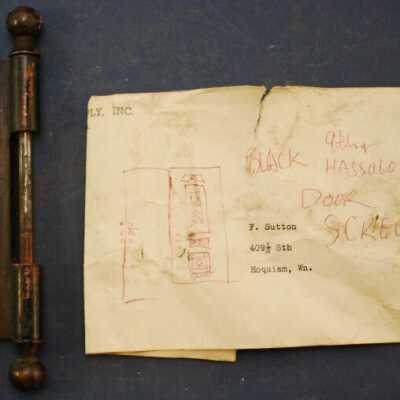 PLY, INC.
9th &
BLACK HASSALO
DOOR
SCREW
F. Sutton
409½ 8th
Hoquiam, Wn.